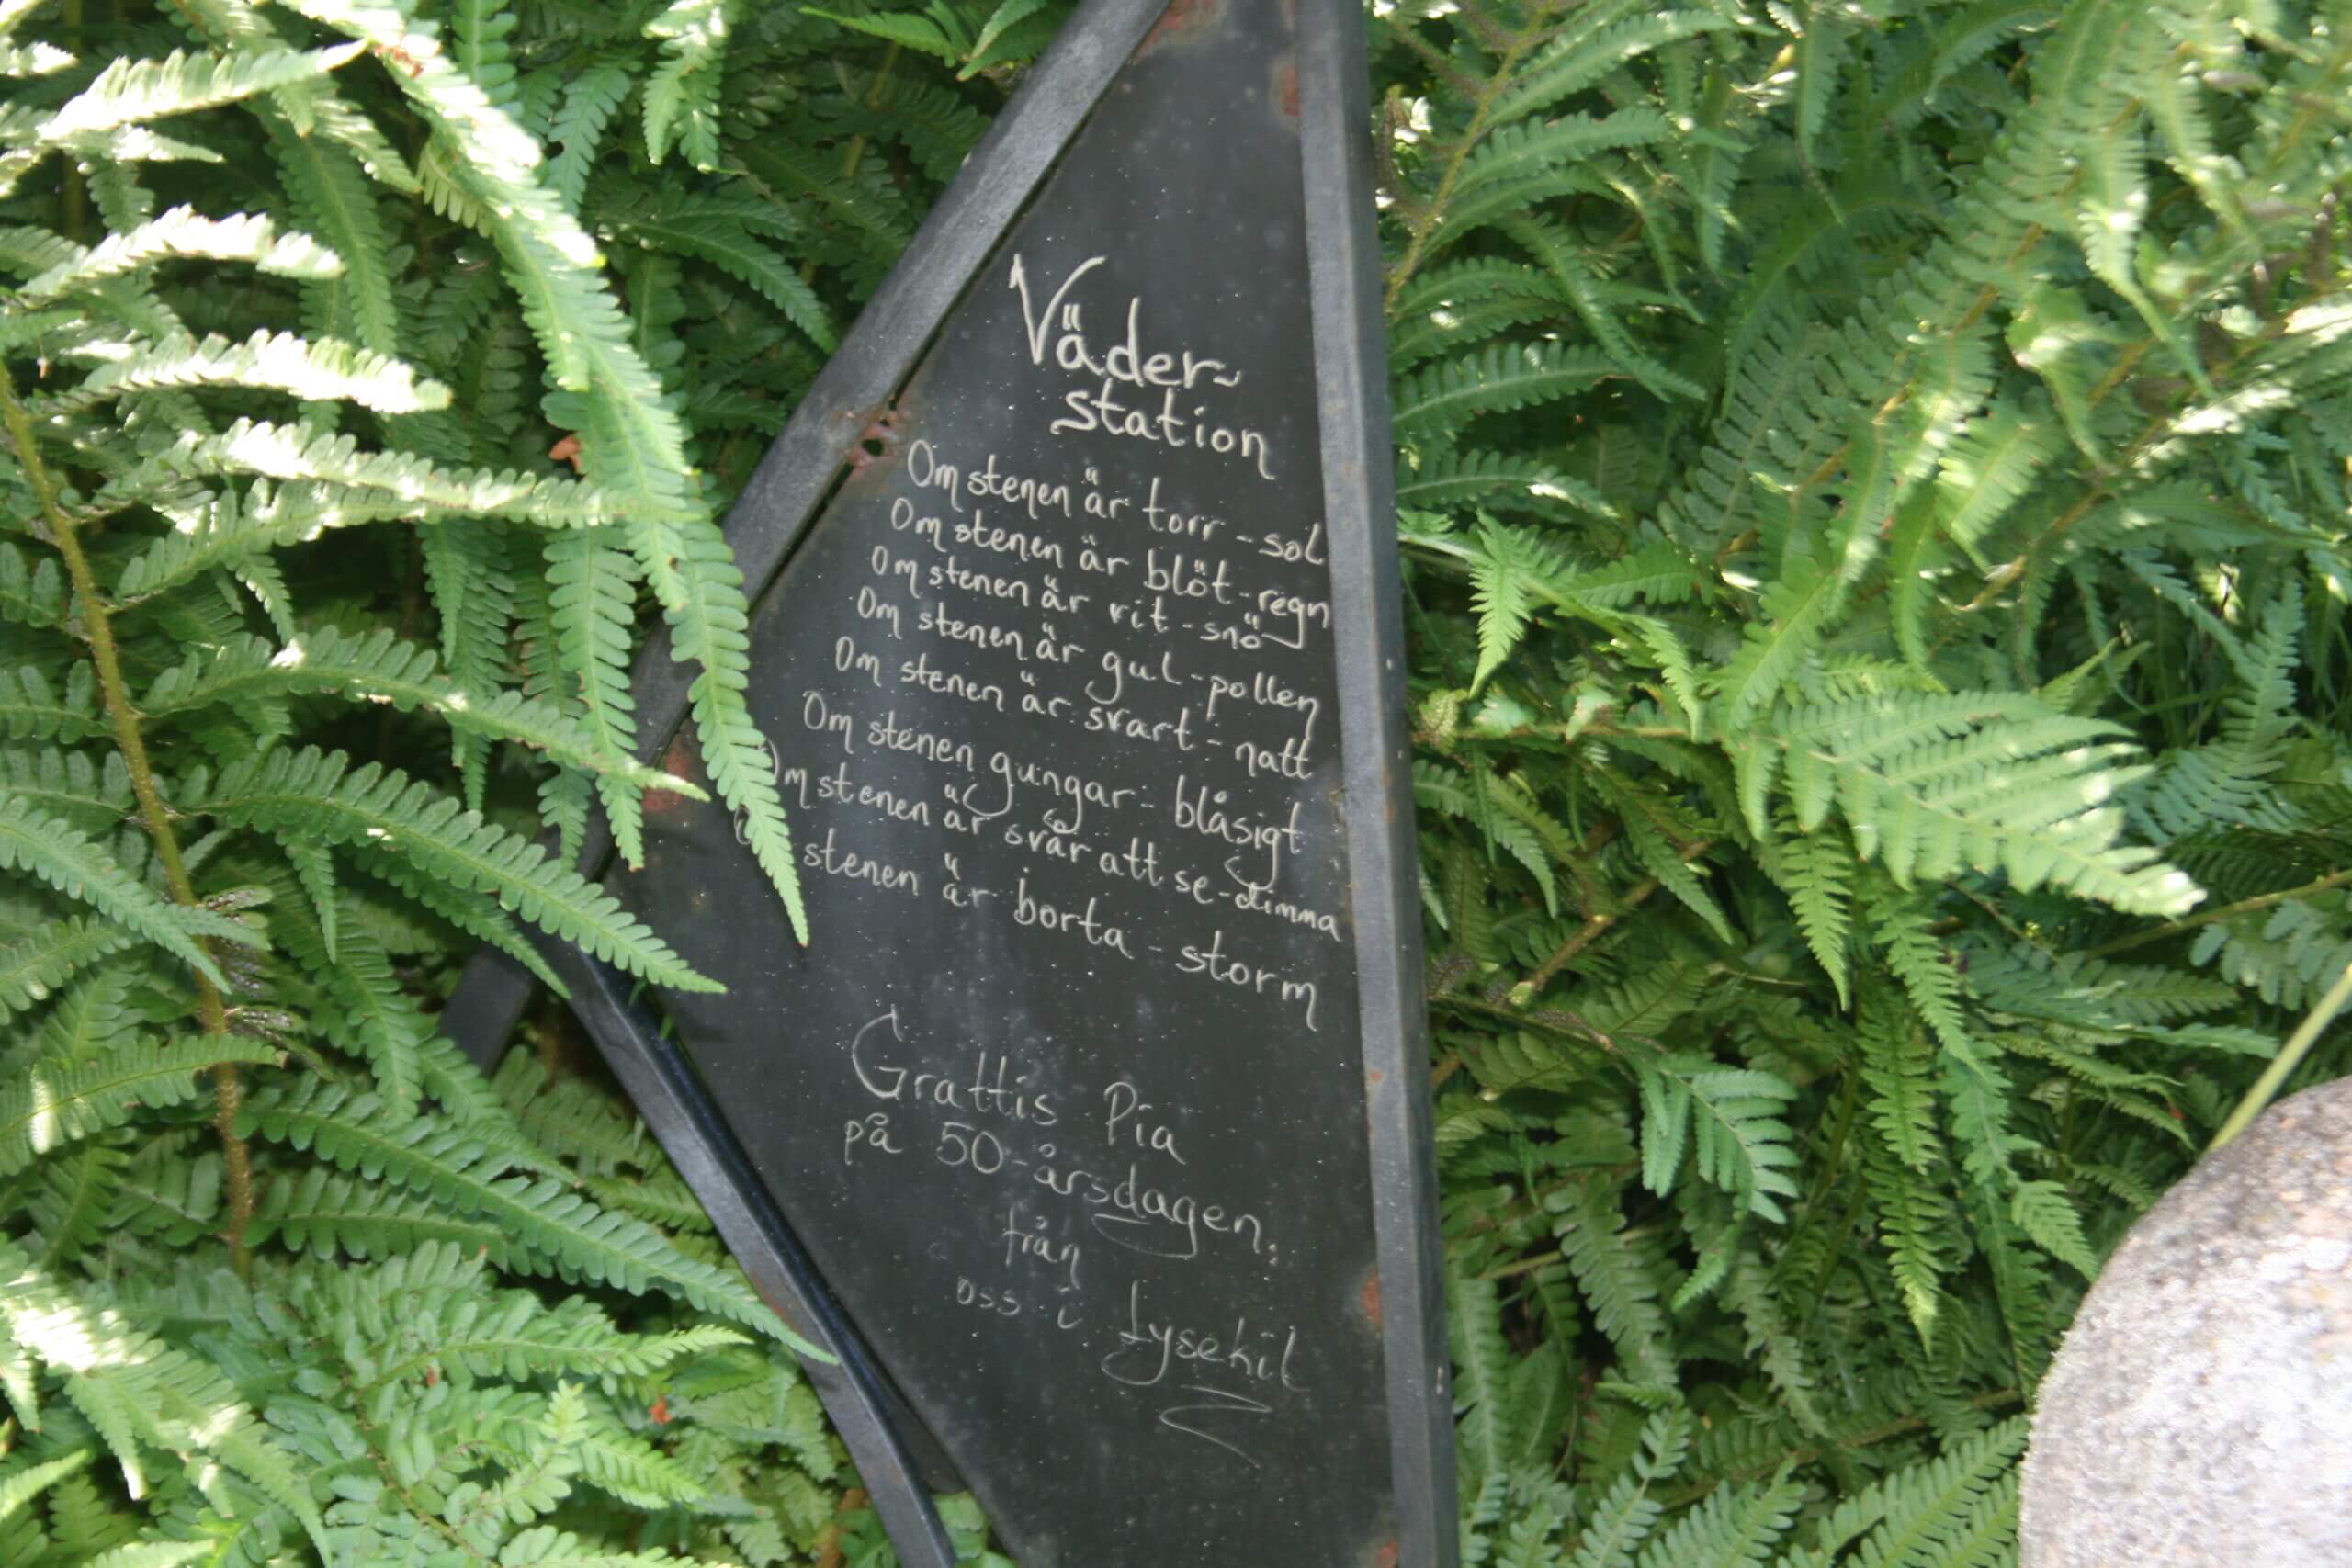 Väder-
station
Om stenen är torr - sol
Om stenen är blöt - regn
Om stenen är vit - snö
Om stenen är gul - pollen
Om stenen är svart - natt
Om stenen gungar - blåsigt
Om stenen är svår att se - dimma
stenen är borta - storm
Grattis Pia
på 50-årsdagen.
från
oss i Lysekil